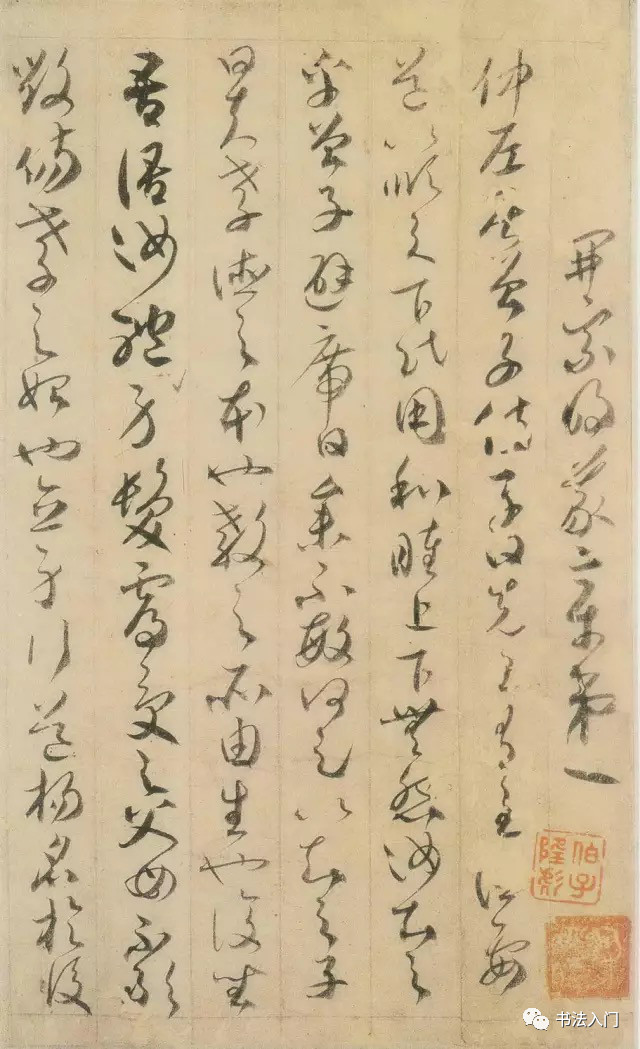 開宗明義章第一
仲尼居曾子侍子曰先王有至德要
道以順天下民用和睦上下無怨汝知之
乎曾子避席曰參不敏何足以知之子
曰夫孝德之本也教之所由生也復坐
吾語汝體身髮膚受之父母不敢
毀傷孝之始也立身行道揚名於後
书法入门